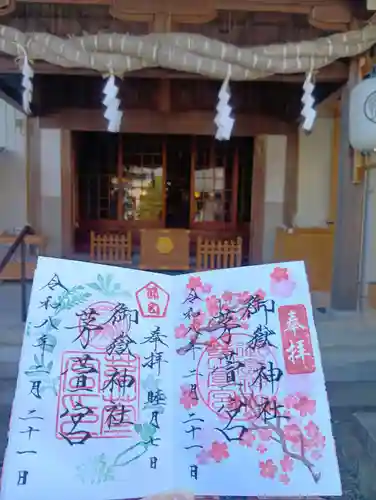 奉拝
御嶽神社
茅萱宮
令和八年二月二十一日
奉拝
御嶽神社
茅萱宮
令和八年二月二十一日